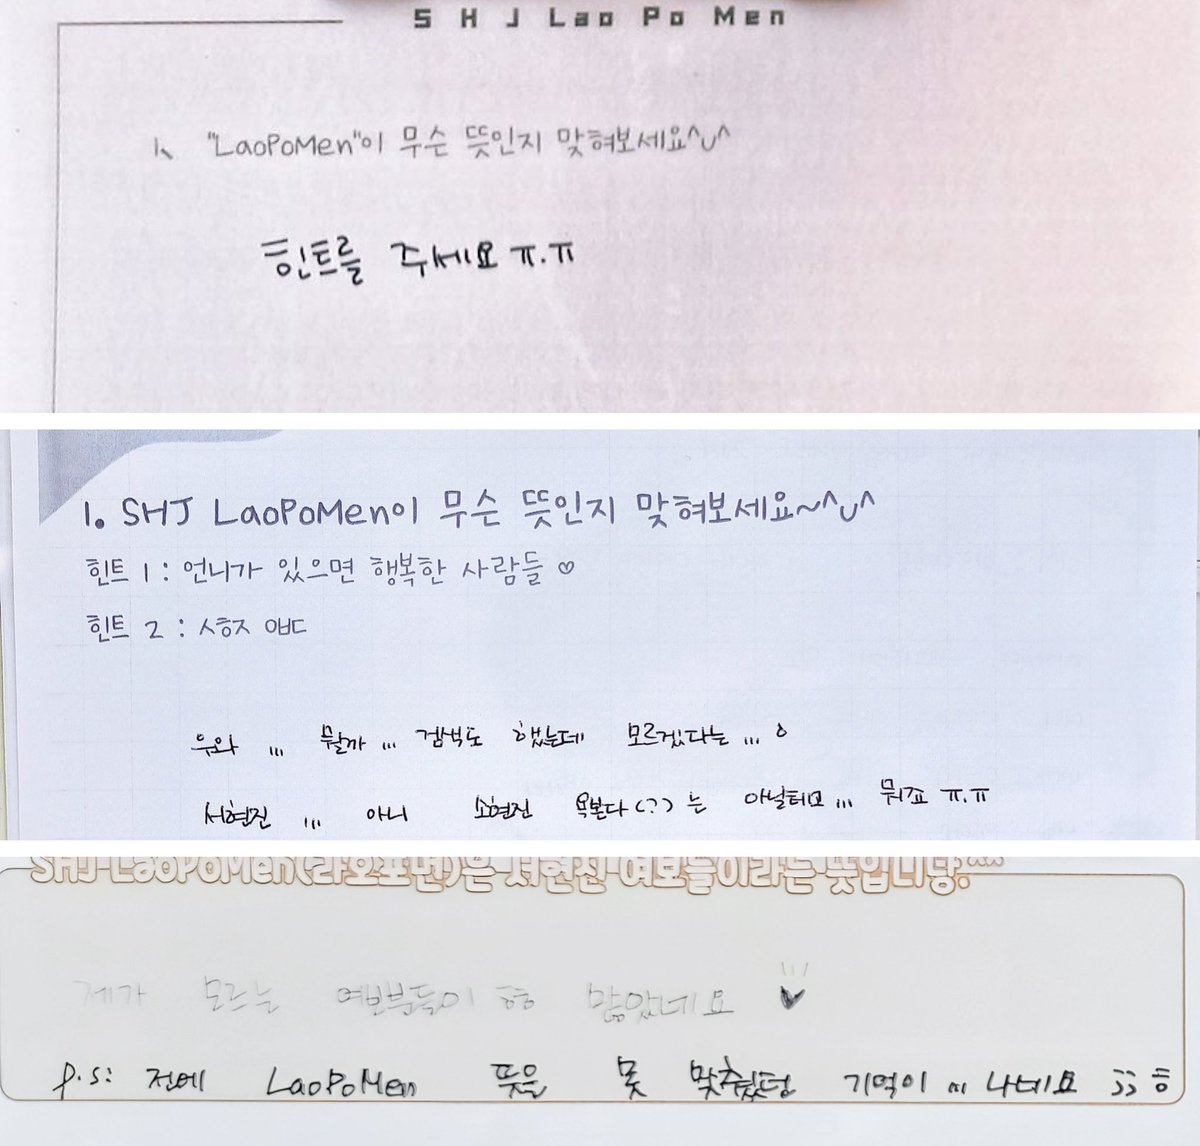 S H J Lao Po Men
1、 "LaoPoMen"이 무슨 뜻인지 맞혀보세요^U^
힌트를 주세요 ㅠ.ㅠ
1. SHJ LaoPoMen이 무슨 뜻인지 맞혀보세요~^U^
힌트 1 : 언니가 있으면 행복한 사람들 ♡
힌트 2 : ㅅㅎㅈ ㅇㅂㄷ
우와 ... 뭘까 ... 검색도 했는데 모르겠다는 ... ㅇ
서현진 ... 아니 소현진 욕본다(?)는 아닐테고 ... 뭐죠 ㅠ.ㅠ
SHJ LaoPoMen(라오포먼)은 서현진 여보들이라는 뜻입니당.^^
제가 모르는 여보분들이 ㅎㅎ 많았네요 ♥
p.s: 전에 LaoPoMen 뜻을 못 맞췄던 기억이 ... 나네요 ;; ㅎ